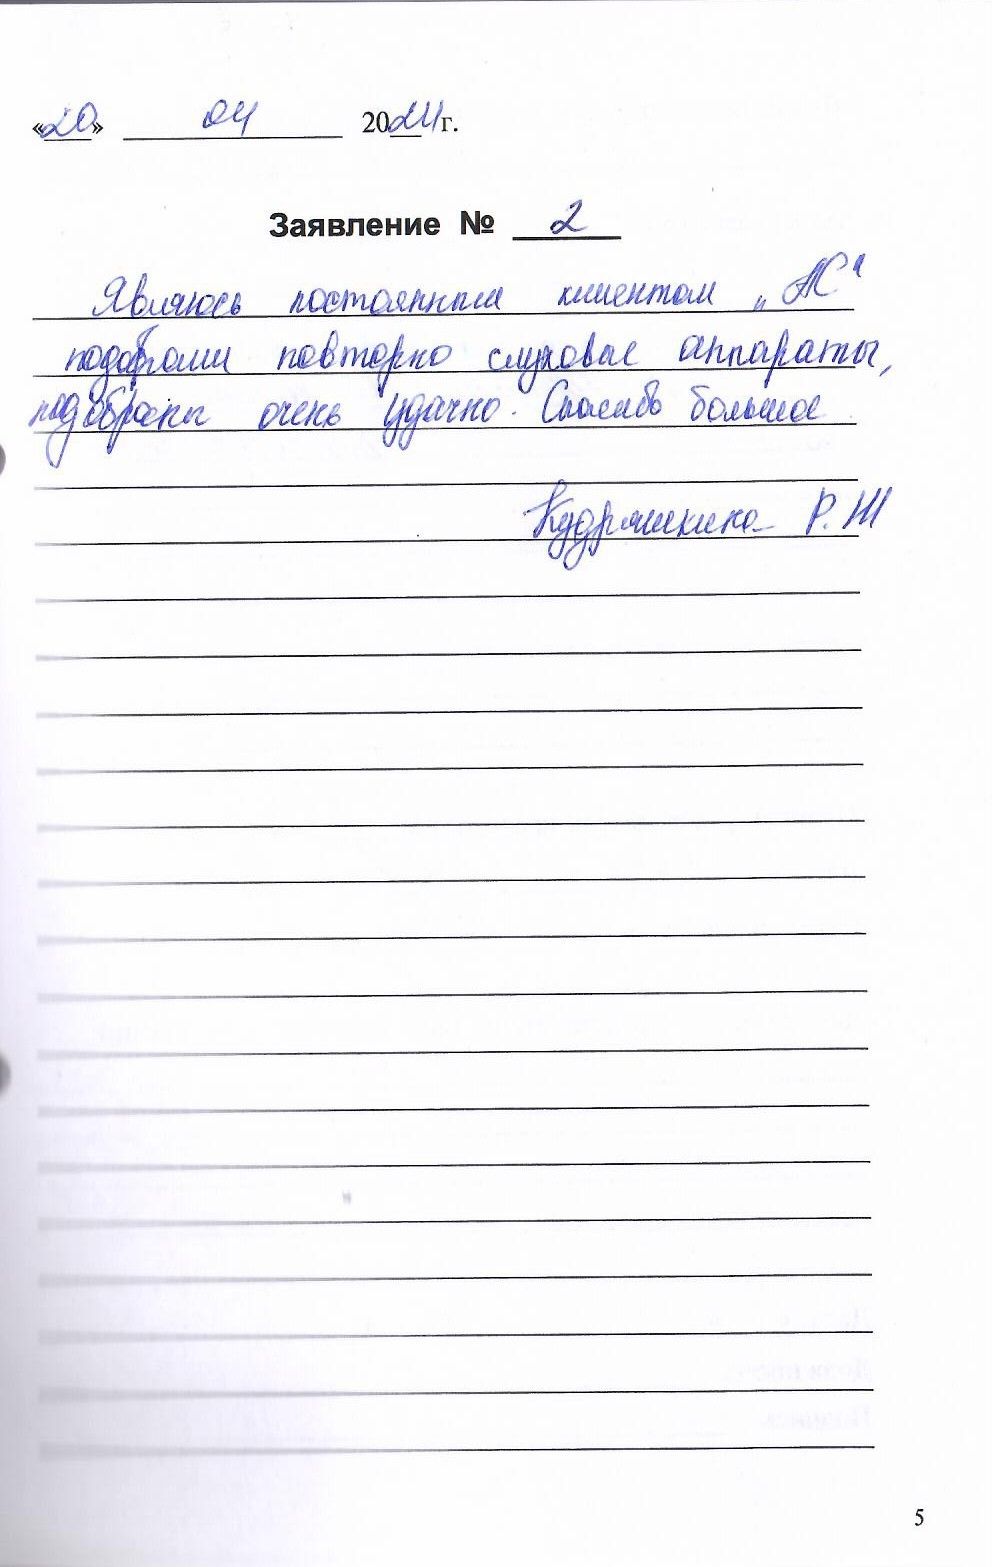 «20» 04 2024г.
Заявление № 2
Являюсь постоянным клиентом „АС“
подобрали повторно слуховые аппараты,
подобраны очень удачно. Спасибо большое
Кудряшкина Р. Ш
5